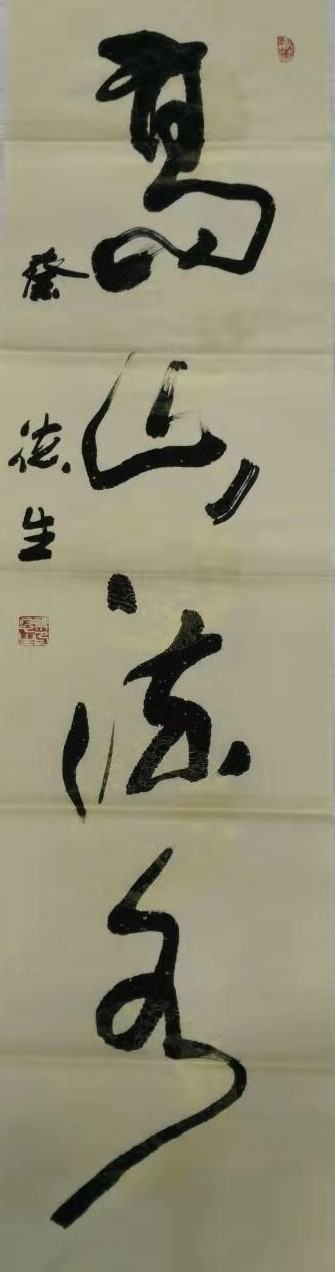 高山流水
蔡德生